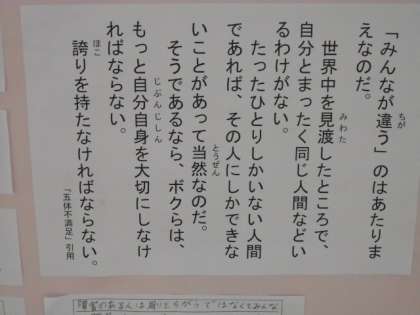 「みんなが違う」のはあたりま
えなのだ。
世界中を見渡したところで、
自分とまったく同じ人間などい
るわけがない。
たったひとりしかいない人間
であれば、その人にしかできな
いことがあって当然なのだ。
そうであるなら、ボクらは、
もっと自分自身を大切にしなけ
ればならない。
誇りを持たなければならない。
「五体不満足」引用